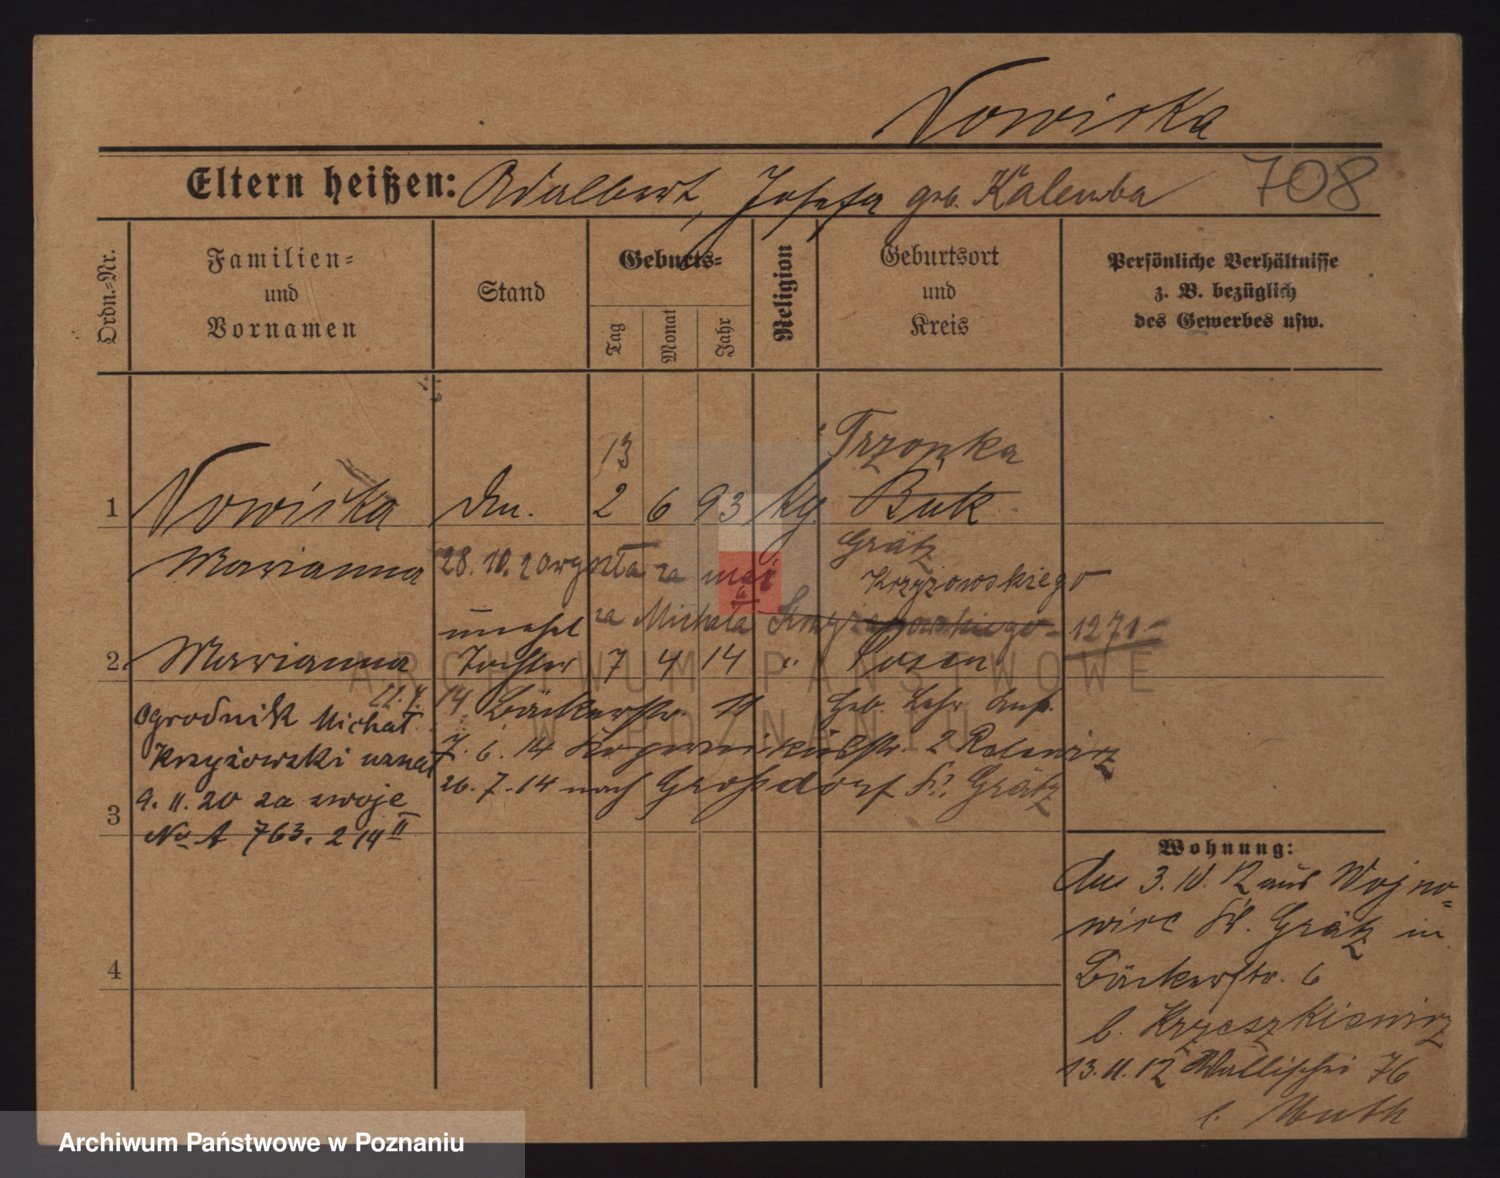 Nowicka
Eltern heißen: Adalbert, Josefa geb. Kalemba 708
Ordn.-Nr.
Familien-
und
Vornamen
Stand
Geburts-
Tag
Monat
Jahr
Religion
Geburtsort
und
Kreis
Persönliche Verhältnisse
z. B. bezüglich
des Gewerbes usw.
13 Trzonka
1 Nowicka 2 6 93 kg. Buk
Marianna 28. 10. 20 wyszła za mąż Grätz
Krzyżowskiego
za Michała 1271
unehel
2 Marianna Tochter 7 4 14 " Posen
22. 4. 14. Bäckerstr.
Ogrodnik Michał
7. 6. 14 2
Krzyżowski uznał
26. 7. 14 nach Großdorf Kr. Grätz
9. 11. 20 za swoje
3 No A 763. 2 19 II
Wohnung:
3. 10. 12 aus Wojno-
wice Kr. Grätz in
4 Bäckerstr. 6
b. Krzeszkiewicz
13. 11. 12 Wallischei 76
b. Muth
ARCHIWUM PAŃSTWOWE
W POZNANIU
Archiwum Państwowe w Poznaniu